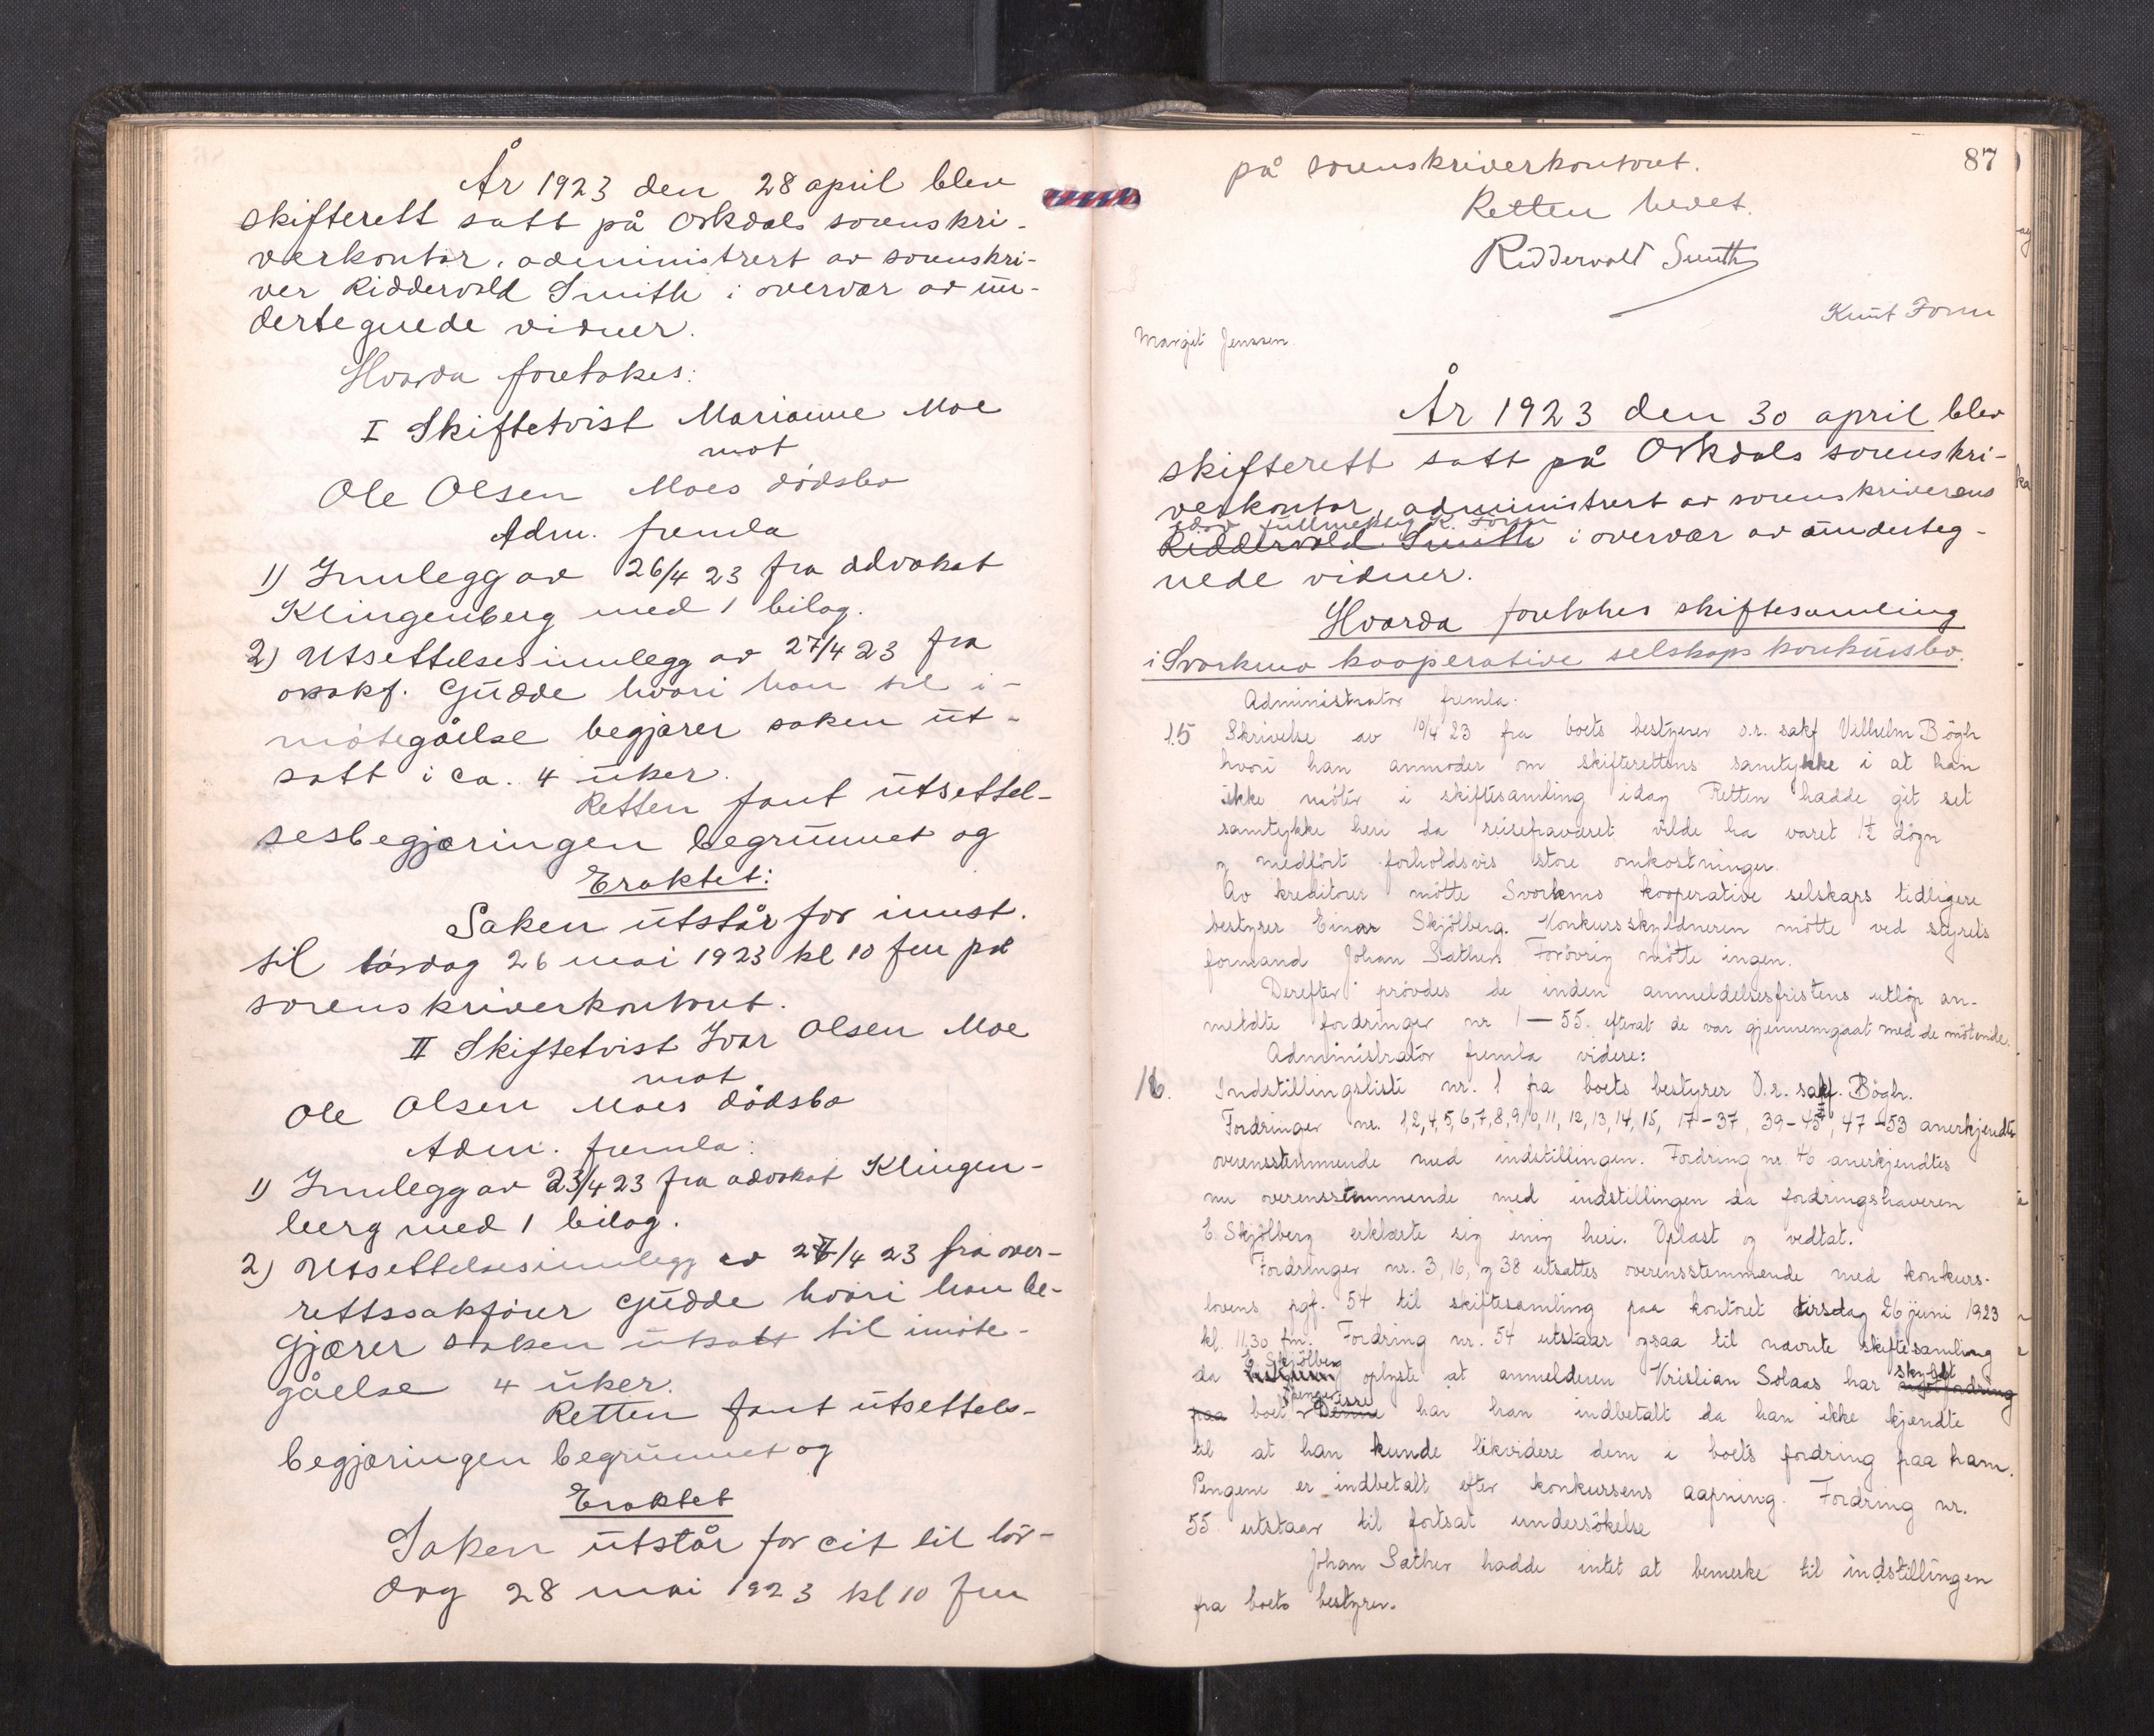 År 1923 den 28 april blev
skifterett satt på Orkdals sorenskri-
verkontor, administrert av sorenskri-
ver Riddervold Smith i overvær av un-
dertegnede vidner.
Hvorda foretokes:
I Skiftetvist Marianne Moe
mot
Ole Olsen Moes dödsbo
Adm. fremla
1) Innlegg av 26/4 23 fra advokat
Klingenberg med 1 bilag.
2) Utsettelsesinnlegg av 27/4 23 fra
orsakf. Gudde hvori han til i-
mötegåelse begjærer saken ut-
satt i ca. 4 uker.
Retten fant utsettel-
sesbegjæringen begrunnet og
Eraktet:
Saken utstår for innst.
til lördag 26 mai 1923 kl 10 fm på
sorenskriverkontoret.
II Skiftetvist Ivar Olsen Moe
mot
Ole Olsen Moes dödsbo
Adm. fremla:
1) Innlegg av 23/4 23 fra advokat Klingen-
berg med 1 bilag.
2) Utsettelsesinnlegg av 27/4 23 fra over-
rettssakförer Gudde hvori han be-
gjærer saken utsatt til imöte-
gåelse 4 uker.
Retten fant utsettels-
begjæringen begrunnet og
Eraktet
Saken utstår for cit til lör-
dag 28 mai 1923 kl 10 fm
87
på sorenskriverkontoret.
Retten hevet.
Riddervold Smith
Knut Forn
Margit Jenssen.
År 1923 den 30 april blev
skifterett satt på Orkdals sorenskri-
verkontor, administrert av sorenskriverens
edsv. fullmektig K. Forn
Riddervold Smith i overvær av underteg-
nede vidner.
Hvorda foretokes skiftesamling
i Svorkmo kooperative selskaps konkursbo.
Administrator fremla:
15 Skrivelse av 10/4 23 fra boets bestyrer o.r. sakf Vilhelm Bögh
hvori han anmoder om skifterettens samtykke i at han
ikke möter i skiftesamling idag Retten hadde git sit
samtykke heri da reisefraværet vilde ha varet 1½ dögn
og medfört forholdsvis store omkostninger.
Av kreditorer mötte Svorkmo kooperative selskaps tidligere
bestyrer Einar Skjölberg. Konkursskyldneren mötte ved styrets
formand Johan Sæther. Forövrig mötte ingen.
Derefter prövdes de inden anmeldelsesfristens utlöp an-
meldte fordringer nr 1 — 55. efterat de var gjennemgaat med de mötende.
Administrator fremla videre:
16. Indstillingsliste nr. 1 fra boets bestyrer O.r. sakf. Bögh.
Fordringer nr. 1,2,4,5,6,7,8,9,10,11, 12, 13, 14, 15, 17-37, 39-45, 47-53 anerkjendtes
overensstemmende med indstillingen. Fordring nr. 46 anerkjendtes
nu overensstemmende med indstillingen da fordringshaveren
E. Skjölberg erklærte sig enig heri. Oplæst og vedtat.
Fordringer nr. 3, 16, og 38 utsattes overensstemmende med konkurs-
lovens pgf. 54 til skiftesamling paa kontoret tirsdag 26 juni 1923
kl. 11.30 fm. Fordring nr. 54 utstaar ogsaa til nævnte skiftesamling
E. Skjölberg skyldt
da oplyste at anmelderen Kristian Solaas har fordring
penger Disse
paa boet. Denne har han indbetalt da han ikke kjendte
til at han kunde likvidere dem i boets fordring paa ham.
Pengene er indbetalt efter konkursens aapning. Fordring nr.
55 utstaar til fortsat undersökelse
Johan Sæther hadde intet at bemerke til indstillingen
fra boets bestyrer.